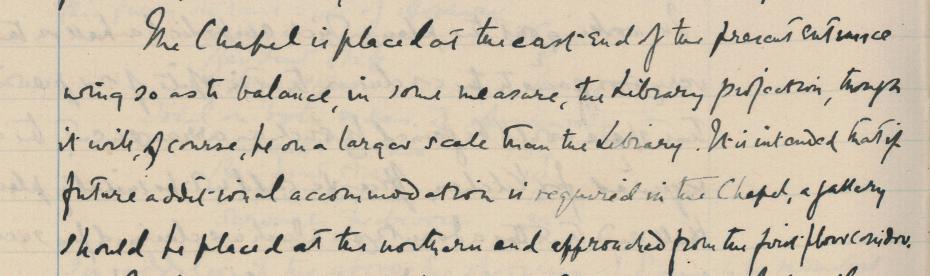 The Chapel is placed at the east end of the present entrance
wing so as to balance, in some measure, the Library projection, though
it will, of course, be on a larger scale than the Library. It is intended that if
future additional accommodation is required in the Chapel, a gallery
should be placed at the northern end approached from the first floor corridor.